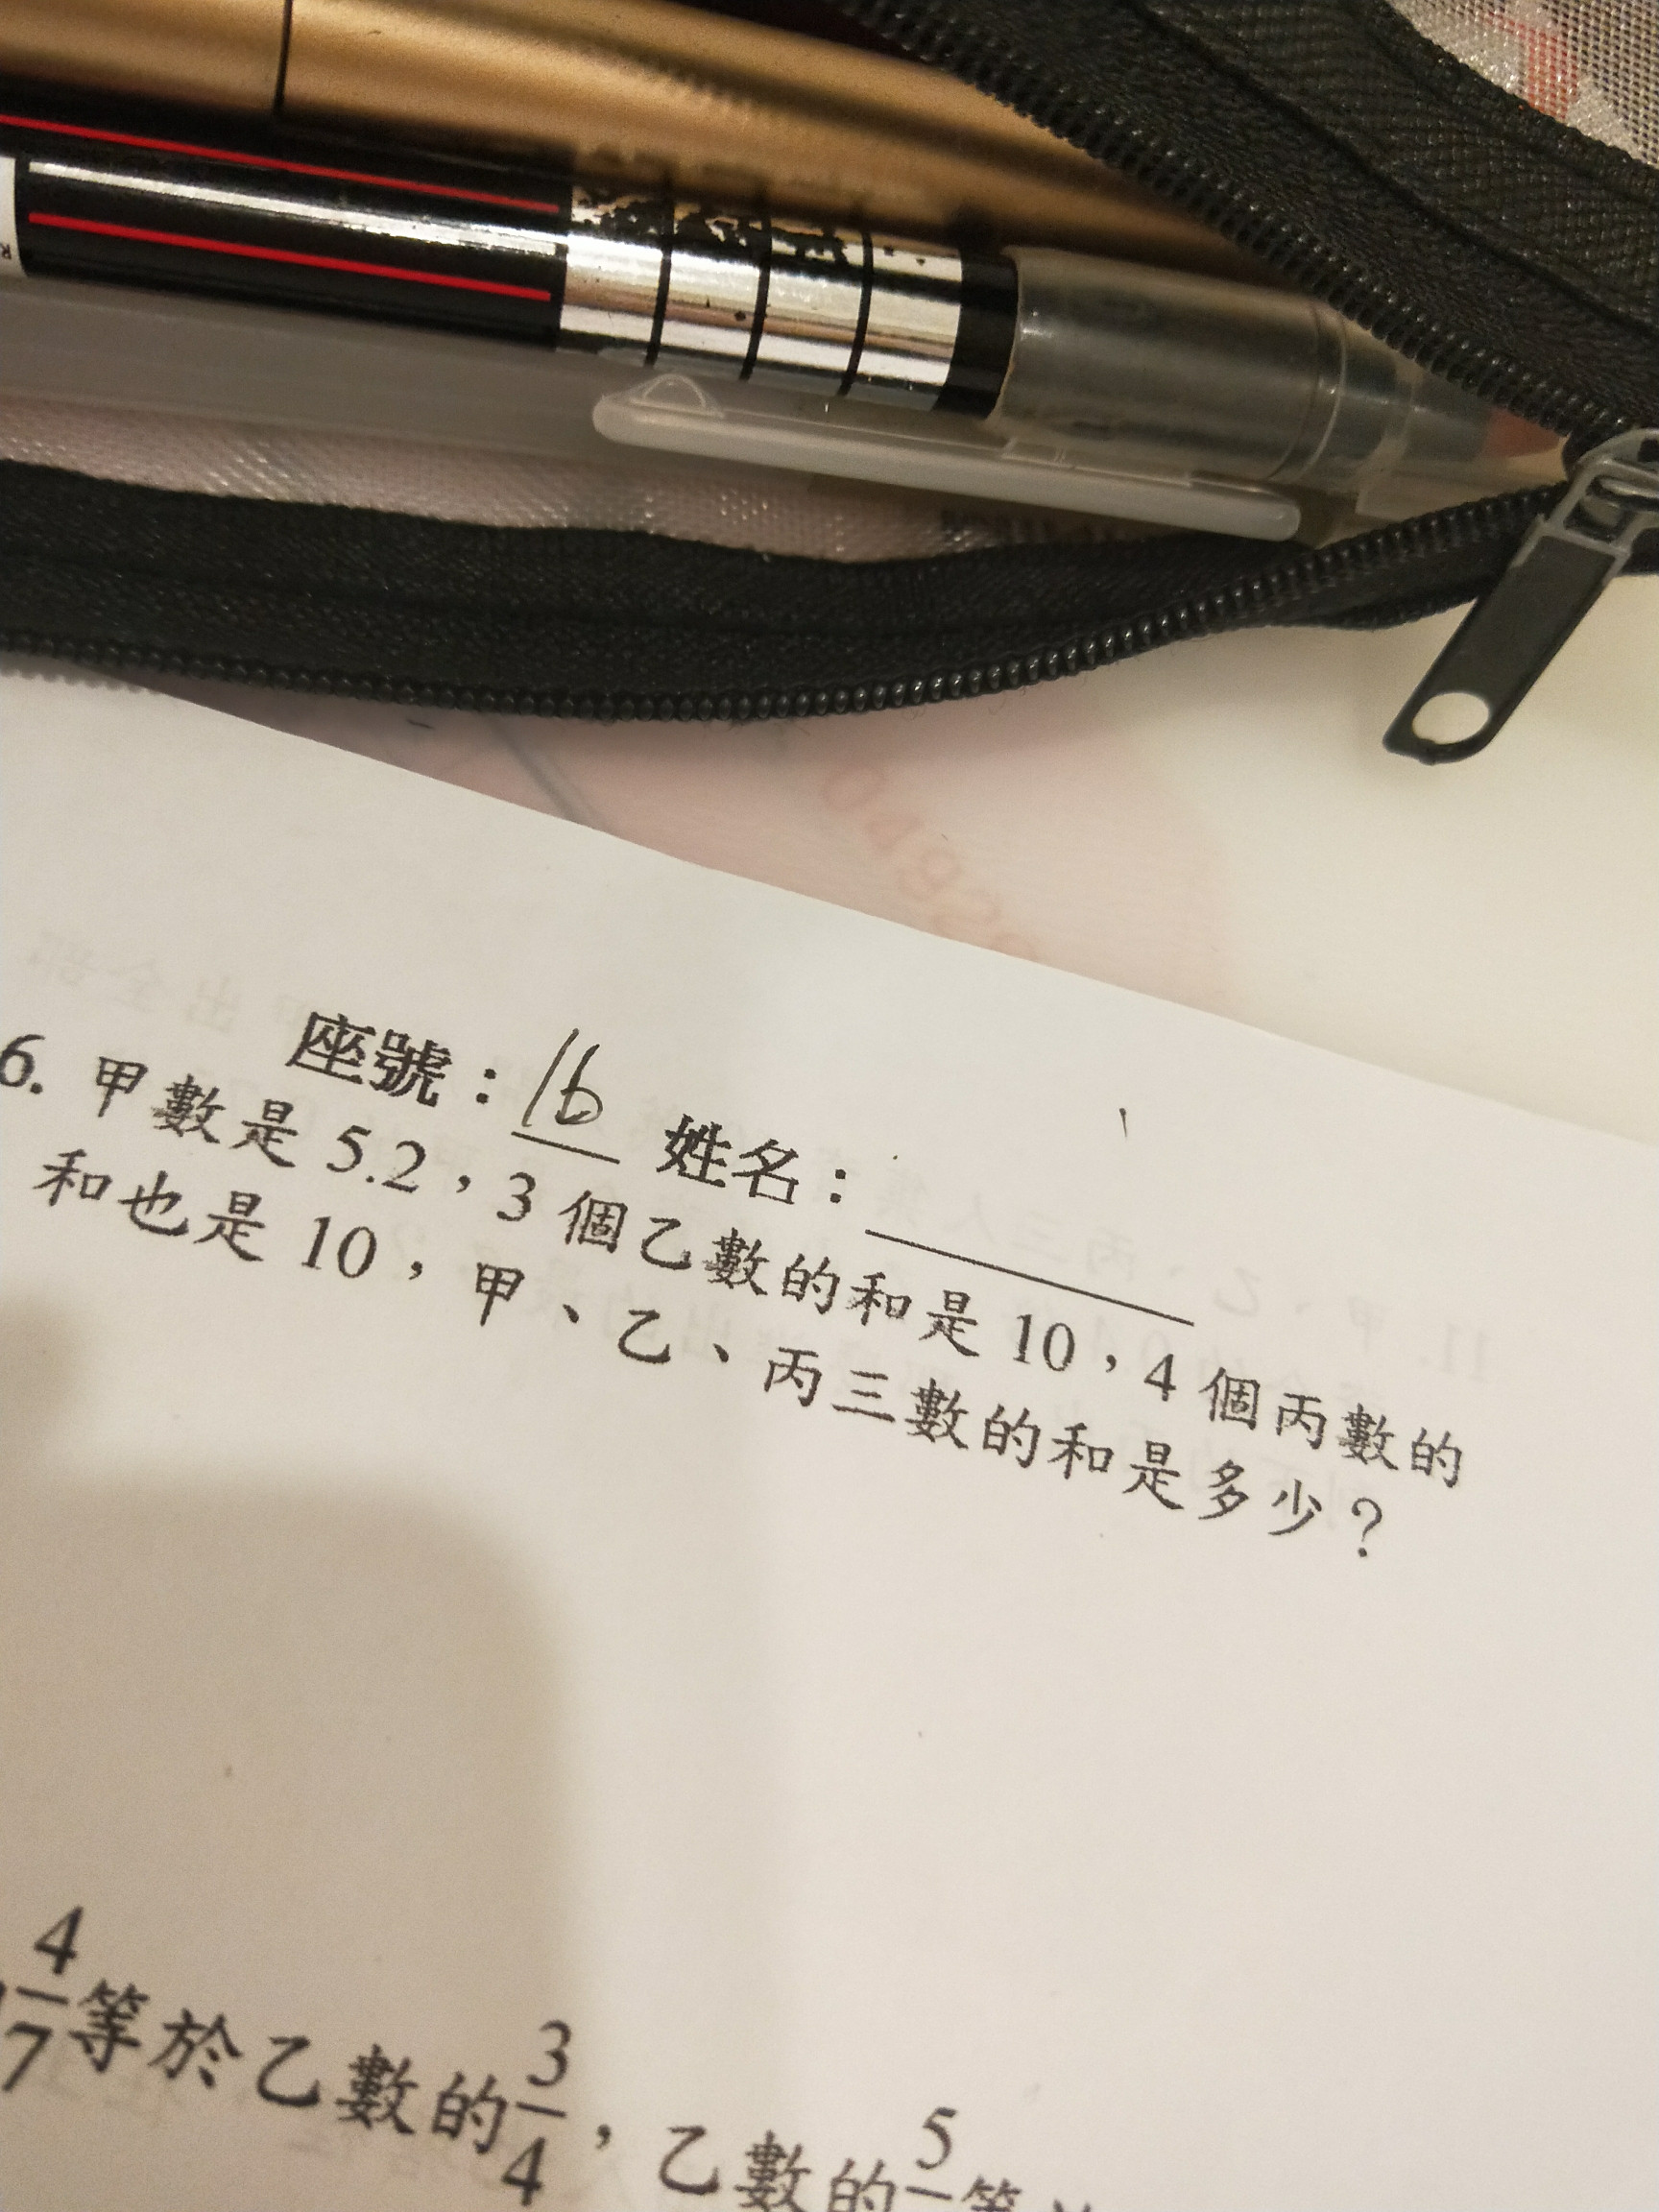 座號：16 姓名：
6. 甲數是 5.2，3 個乙數的和是 10，4 個丙數的
和也是 10，甲、乙、丙三數的和是多少？
4/7等於乙數的3/4，乙數的5